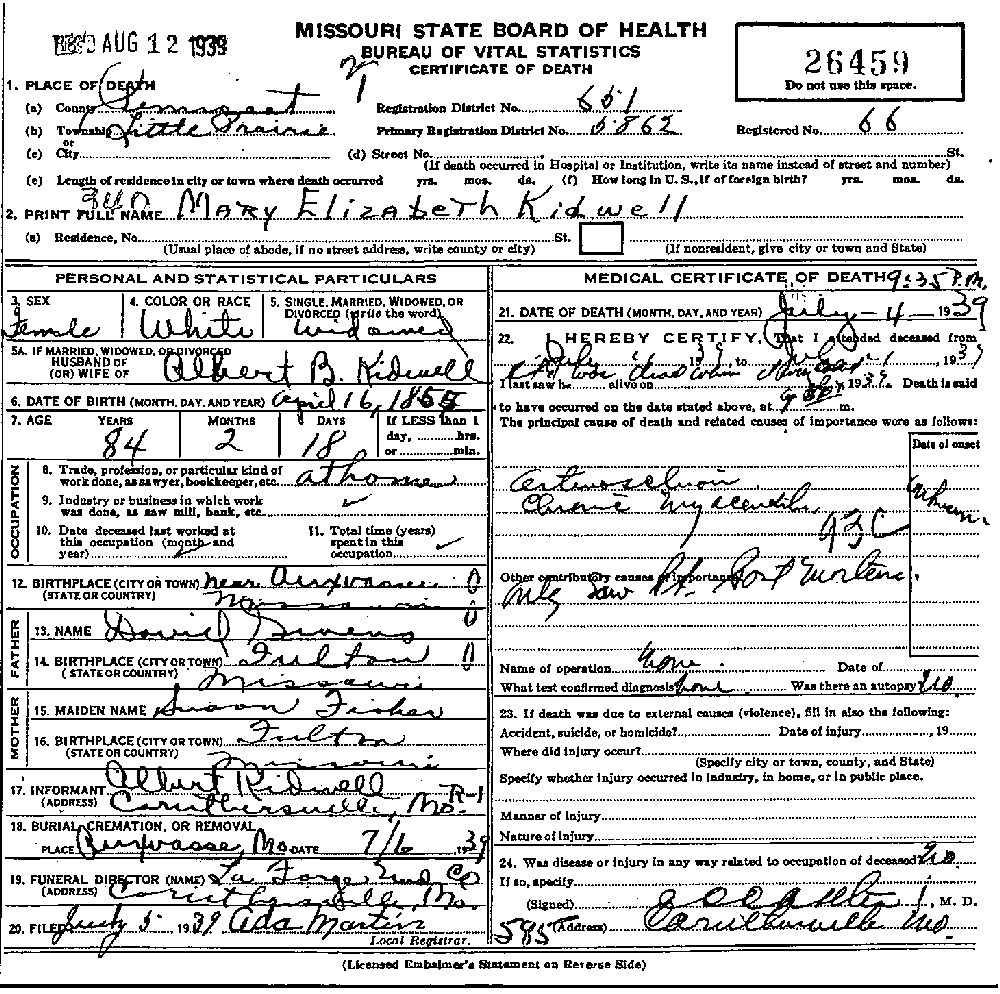 REC'D AUG 12 1939
MISSOURI STATE BOARD OF HEALTH
BUREAU OF VITAL STATISTICS
CERTIFICATE OF DEATH
26459
Do not use this space.
1. PLACE OF DEATH
(a) County Pemiscot Registration District No. 651
(b) Township Little Prairie Primary Registration District No. 5862 Registered No. 66
or
(c) City (d) Street No. St.
(If death occurred in Hospital or Institution, write its name instead of street and number)
(e) Length of residence in city or town where death occurred yrs. mos. ds. (f) How long in U. S., if of foreign birth? yrs. mos. ds.
2. PRINT FULL NAME Mary Elizabeth Kidwell
(a) Residence, No. St.
(Usual place of abode, if no street address, write county or city) (If nonresident, give city or town and State)
PERSONAL AND STATISTICAL PARTICULARS
3. SEX 4. COLOR OR RACE 5. SINGLE, MARRIED, WIDOWED, OR
DIVORCED (write the word)
Female White Widowed
5A. IF MARRIED, WIDOWED, OR DIVORCED
HUSBAND OF
(OR) WIFE OF Albert B. Kidwell
6. DATE OF BIRTH (MONTH, DAY, AND YEAR) April 16, 1855
7. AGE YEARS MONTHS DAYS If LESS than 1
day, hrs.
84 2 18 or min.
OCCUPATION
8. Trade, profession, or particular kind of
work done, as sawyer, bookkeeper, etc. at home
9. Industry or business in which work
was done, as saw mill, bank, etc.
10. Date deceased last worked at
this occupation (month and
year)
11. Total time (years)
spent in this
occupation
12. BIRTHPLACE (CITY OR TOWN) near Auxvasse
(STATE OR COUNTRY) Missouri
FATHER
13. NAME David Givens
14. BIRTHPLACE (CITY OR TOWN) Fulton
(STATE OR COUNTRY) Missouri
MOTHER
15. MAIDEN NAME Susan Fisher
16. BIRTHPLACE (CITY OR TOWN) Fulton
(STATE OR COUNTRY) Missouri
17. INFORMANT Albert Kidwell
(ADDRESS) Caruthersville, Mo. R-1
18. BURIAL, CREMATION, OR REMOVAL
PLACE Auxvasse, Mo DATE 7/6 1939
19. FUNERAL DIRECTOR (NAME) La Forge Und Co
(ADDRESS) Caruthersville, Mo.
20. FILED July 5 1939 Ada Martin
Local Registrar.
MEDICAL CERTIFICATE OF DEATH 9:35 P.M.
21. DATE OF DEATH (MONTH, DAY, AND YEAR) July - 4 - 1939
22. I HEREBY CERTIFY, That I attended deceased from
July 1939 to July 1939
I last saw h alive on 1939. Death is said
to have occurred on the date stated above, at m.
The principal cause of death and related causes of importance were as follows:
Date of onset
Chronic Myocarditis
93C
Other contributory causes of importance:
Saw Pt. Post Mortem
Name of operation none Date of
What test confirmed diagnosis none Was there an autopsy no
23. If death was due to external causes (violence), fill in also the following:
Accident, suicide, or homicide? Date of injury , 19
Where did injury occur?
(Specify city or town, county, and State)
Specify whether injury occurred in industry, in home, or in public place.
Manner of injury
Nature of injury
24. Was disease or injury in any way related to occupation of deceased? no
If so, specify
(Signed) , M. D.
585 (Address) Caruthersville Mo.
(Licensed Embalmer's Statement on Reverse Side)